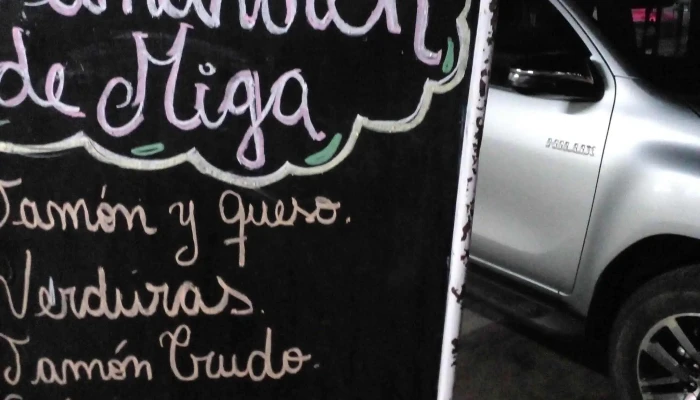 de Miga
Jamón y queso.
Verduras.
Jamón Crudo.